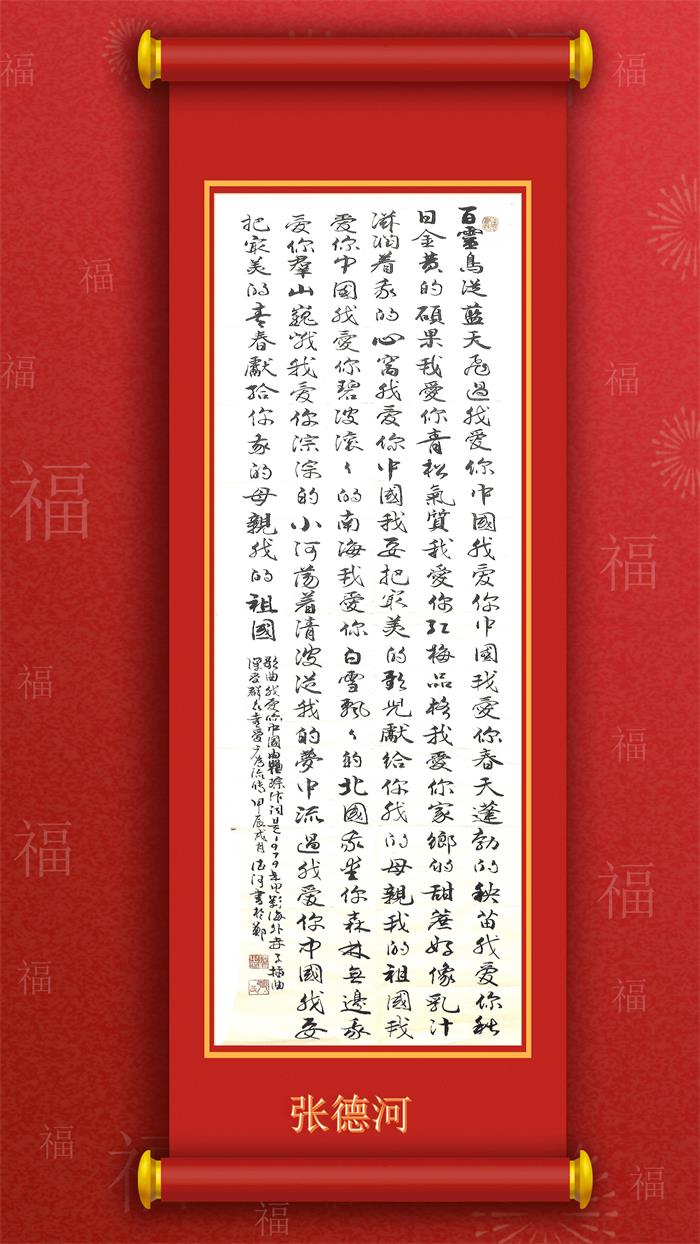 百靈鳥從藍天飛過我愛你中國我愛你中國我愛你春天蓬勃的秧苗我愛你秋
日金黃的碩果我愛你青松氣質我愛你红梅品格我愛你家鄉的甜蔗好像乳汁
滋潤着我的心窩我愛你中國我要把最美的歌兒獻給你我的母親我的祖國我
愛你中國我愛你碧波滾々的南海我愛你白雪飄々的北國我愛你森林無邊我
愛你羣山巍峨我愛你淙淙的小河蕩着清波從我的夢中流過我愛你中國我要
把最美的青春獻給你我的母親我的祖國
歌曲我愛你中國由瞿琮作词是1979年电影海外赤子插曲
深受群众喜爱广为流传甲辰戌月德河書於鄭
张德河